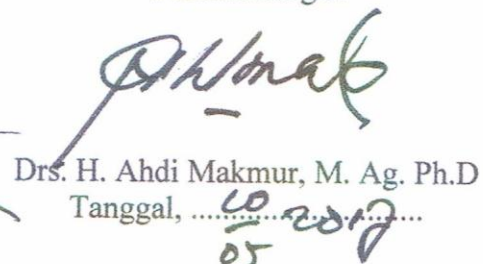 Drs. H. Ahdi Makmur, M. Ag. Ph.D
Tanggal, ......................
05